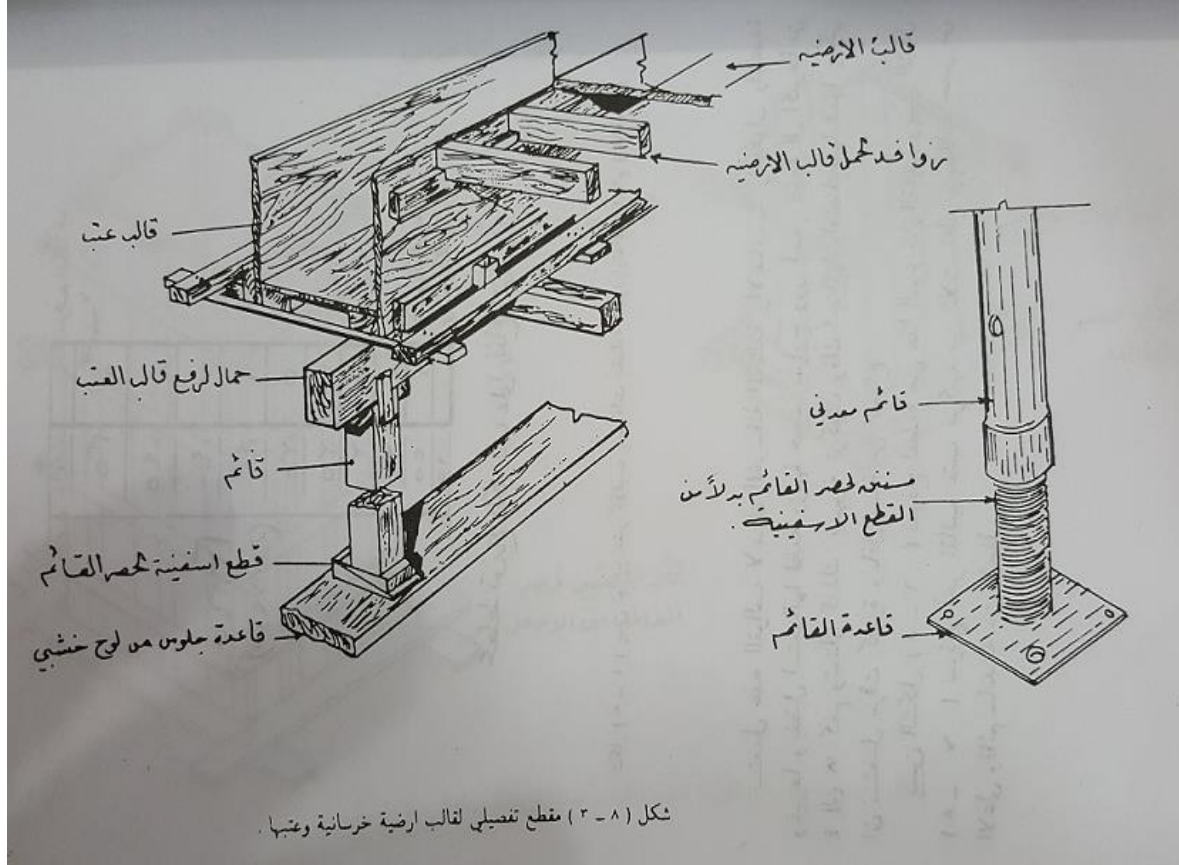 قالب الارضيه
روافد تحمل قالب الارضيه
قالب عتب
حمال لرفع قالب العتب
قائم
قطع اسفينية لحصر القائم
قاعدة جلوس من لوح خشبي
قائم معدني
مسنن لحصر القائم بدلاً من
القطع الاسفينية .
قاعدة القائم
شكل ( ٨ ــ ٣ ) مقطع تفصيلي لقالب ارضية خرسانية وعتبها .